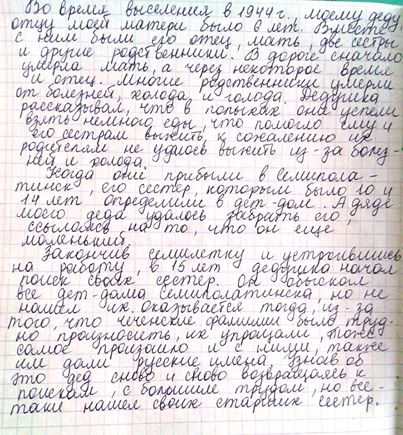 Во время выселения в 1944 г., моему деду,
отцу моей матери было 8 лет. Вместе
с ним были его отец, мать, две сестры
и другие родственники. В дороге сначало
умерла мать, а через некоторое время
и отец. Многие родственники умерли
от болезней, холода и голода. Дедушка
рассказывал, что в попыхах они успели
взять немного еды, что помогло ему и
его сестрам выжить, к сожалению их
родителям не удаось выжить из-за болез-
ней и холода.
Когда они прибыли в Семипола-
тинск, его сестер, которым было 10 и
14 лет определили в дет-дом. А дяде
моего деда удалось забрать его,
ссылаясь на то, что он еще
маленький.
Закончив семилетку и устроившись
на работу, в 15 лет дедушка начал
поиск своих сестер. Он обыскал
все дет-дома Семипалатинска, но не
нашел их. Оказывается тогда, из-за
того, что чеченские фамилии было труд-
но произносить, их упрощали, тоже
самое произошло и с ними, также
им дали русские имена. Узнав об
это дед сново и сново возвращаясь к
поискам, с большим трудом, но все-
таки нашел своих старших сестер.